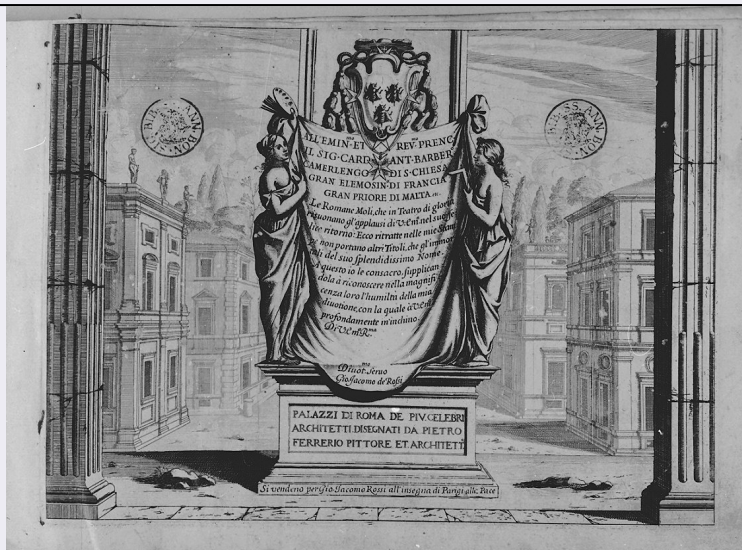 ALL'EMIN·ET REV·PRENC·
IL SIG·CARD ANT·BARBER
CAMERLENGO DI·S·CHIESA
GRAN ELEMOSIN·DI FRANCIA
GRAN PRIORE DI MALTA etc.
Le Romane Moli, che in Teatro di gloria
risuonano gl'applausi di V.Em.nel suo fe
lice ritorno: Ecco ritratte nelle mie Stam
pe non portano altri Titoli, che gl'immor
tali del suo splendidissimo Nome.
A questo io le consacro, supplican
dola à riconoscere nella magnifi
cenza loro l'humiltà della mia
diuotione, con la quale à V.Em.
profondamente m'inchino.
Di V.Em.R.ma
Diuot.mo Seruo
Gio.Jacomo de Rossi
PALAZZI DI ROMA DE PIV·CELEBRI
ARCHITETTI·DISEGNATI DA PIETRO
FERRERIO PITTORE ET·ARCHITETT
Si vendeno per Gio.Jacomo Rossi all'insegna di Parigi alla Pace
BIB. SS. ANN. BON.